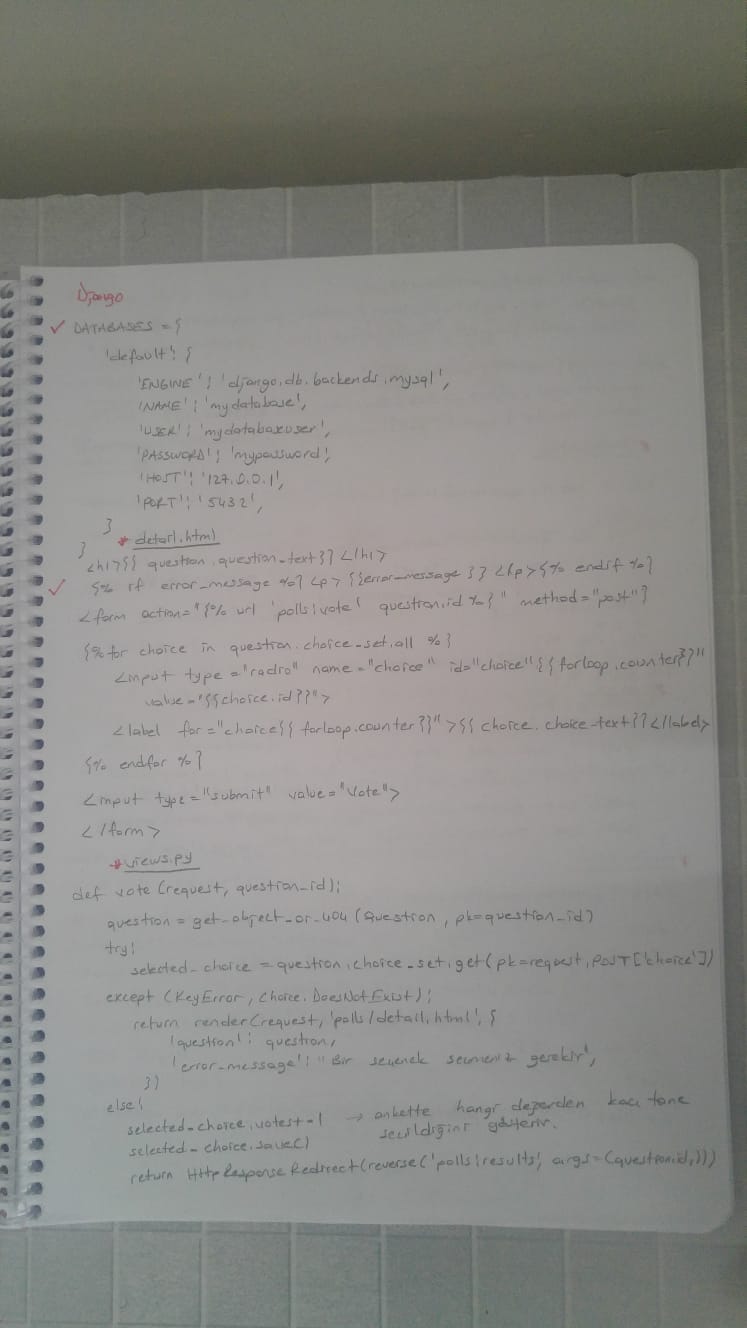 Django
✓ DATABASES = {
'default': {
'ENGINE': 'django.db.backends.mysql',
'NAME': 'mydatabase',
'USER': 'mydatabaseuser',
'PASSWORD': 'mypassword',
'HOST': '127.0.0.1',
'PORT': '5432',
}
}
* detail.html
<h1>{{ question.question_text }}</h1>
✓ {% if error_message %} <p> {{error_message}} </p> {% endif %}
<form action="{% url 'polls:vote' question.id %}" method="post"}
{% for choice in question.choice_set.all %}
<input type="radio" name="choice" id="choice"{{forloop.counter}}"
value="{{choice.id}}">
<label for="choice{{ forloop.counter}}">{{ choice.choice_text}}</label>
{% endfor %}
<input type="submit" value="Vote">
</form>
* views.py
def vote (request, question_id):
question = get_object_or_404 (Question, pk=question_id)
try:
selected_choice = question.choice_set.get(pk=request.POST['choice'])
except (KeyError, Choice.DoesNotExist):
return render(request, 'polls/detail.html', {
'question': question,
'error_message': "Bir seçenek seçmeniz gerekir",
})
else:
selected_choice.votes+=1 → ankette hangi değerden kaç tane
seçildiğini gösterir.
selected_choice.save()
return HttpResponseRedirect(reverse('polls:results', args=(question.id,)))